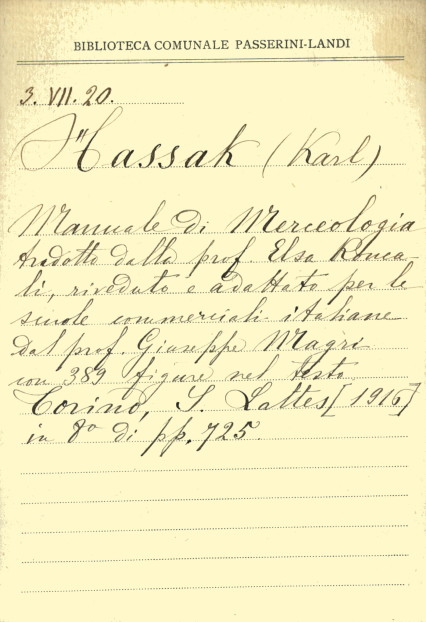 BIBLIOTECA COMUNALE PASSERINI-LANDI
3. VII. 20.
Hassak (Karl)
Manuale di Merceologia
tradotto dalla prof. Elsa Ronca-
li, riveduto e adattato per le
scuole commerciali italiane
dal prof. Giuseppe Magri
con 389 figure nel testo
Torino, S. Lattes [1916]
in 8° di pp. 725.